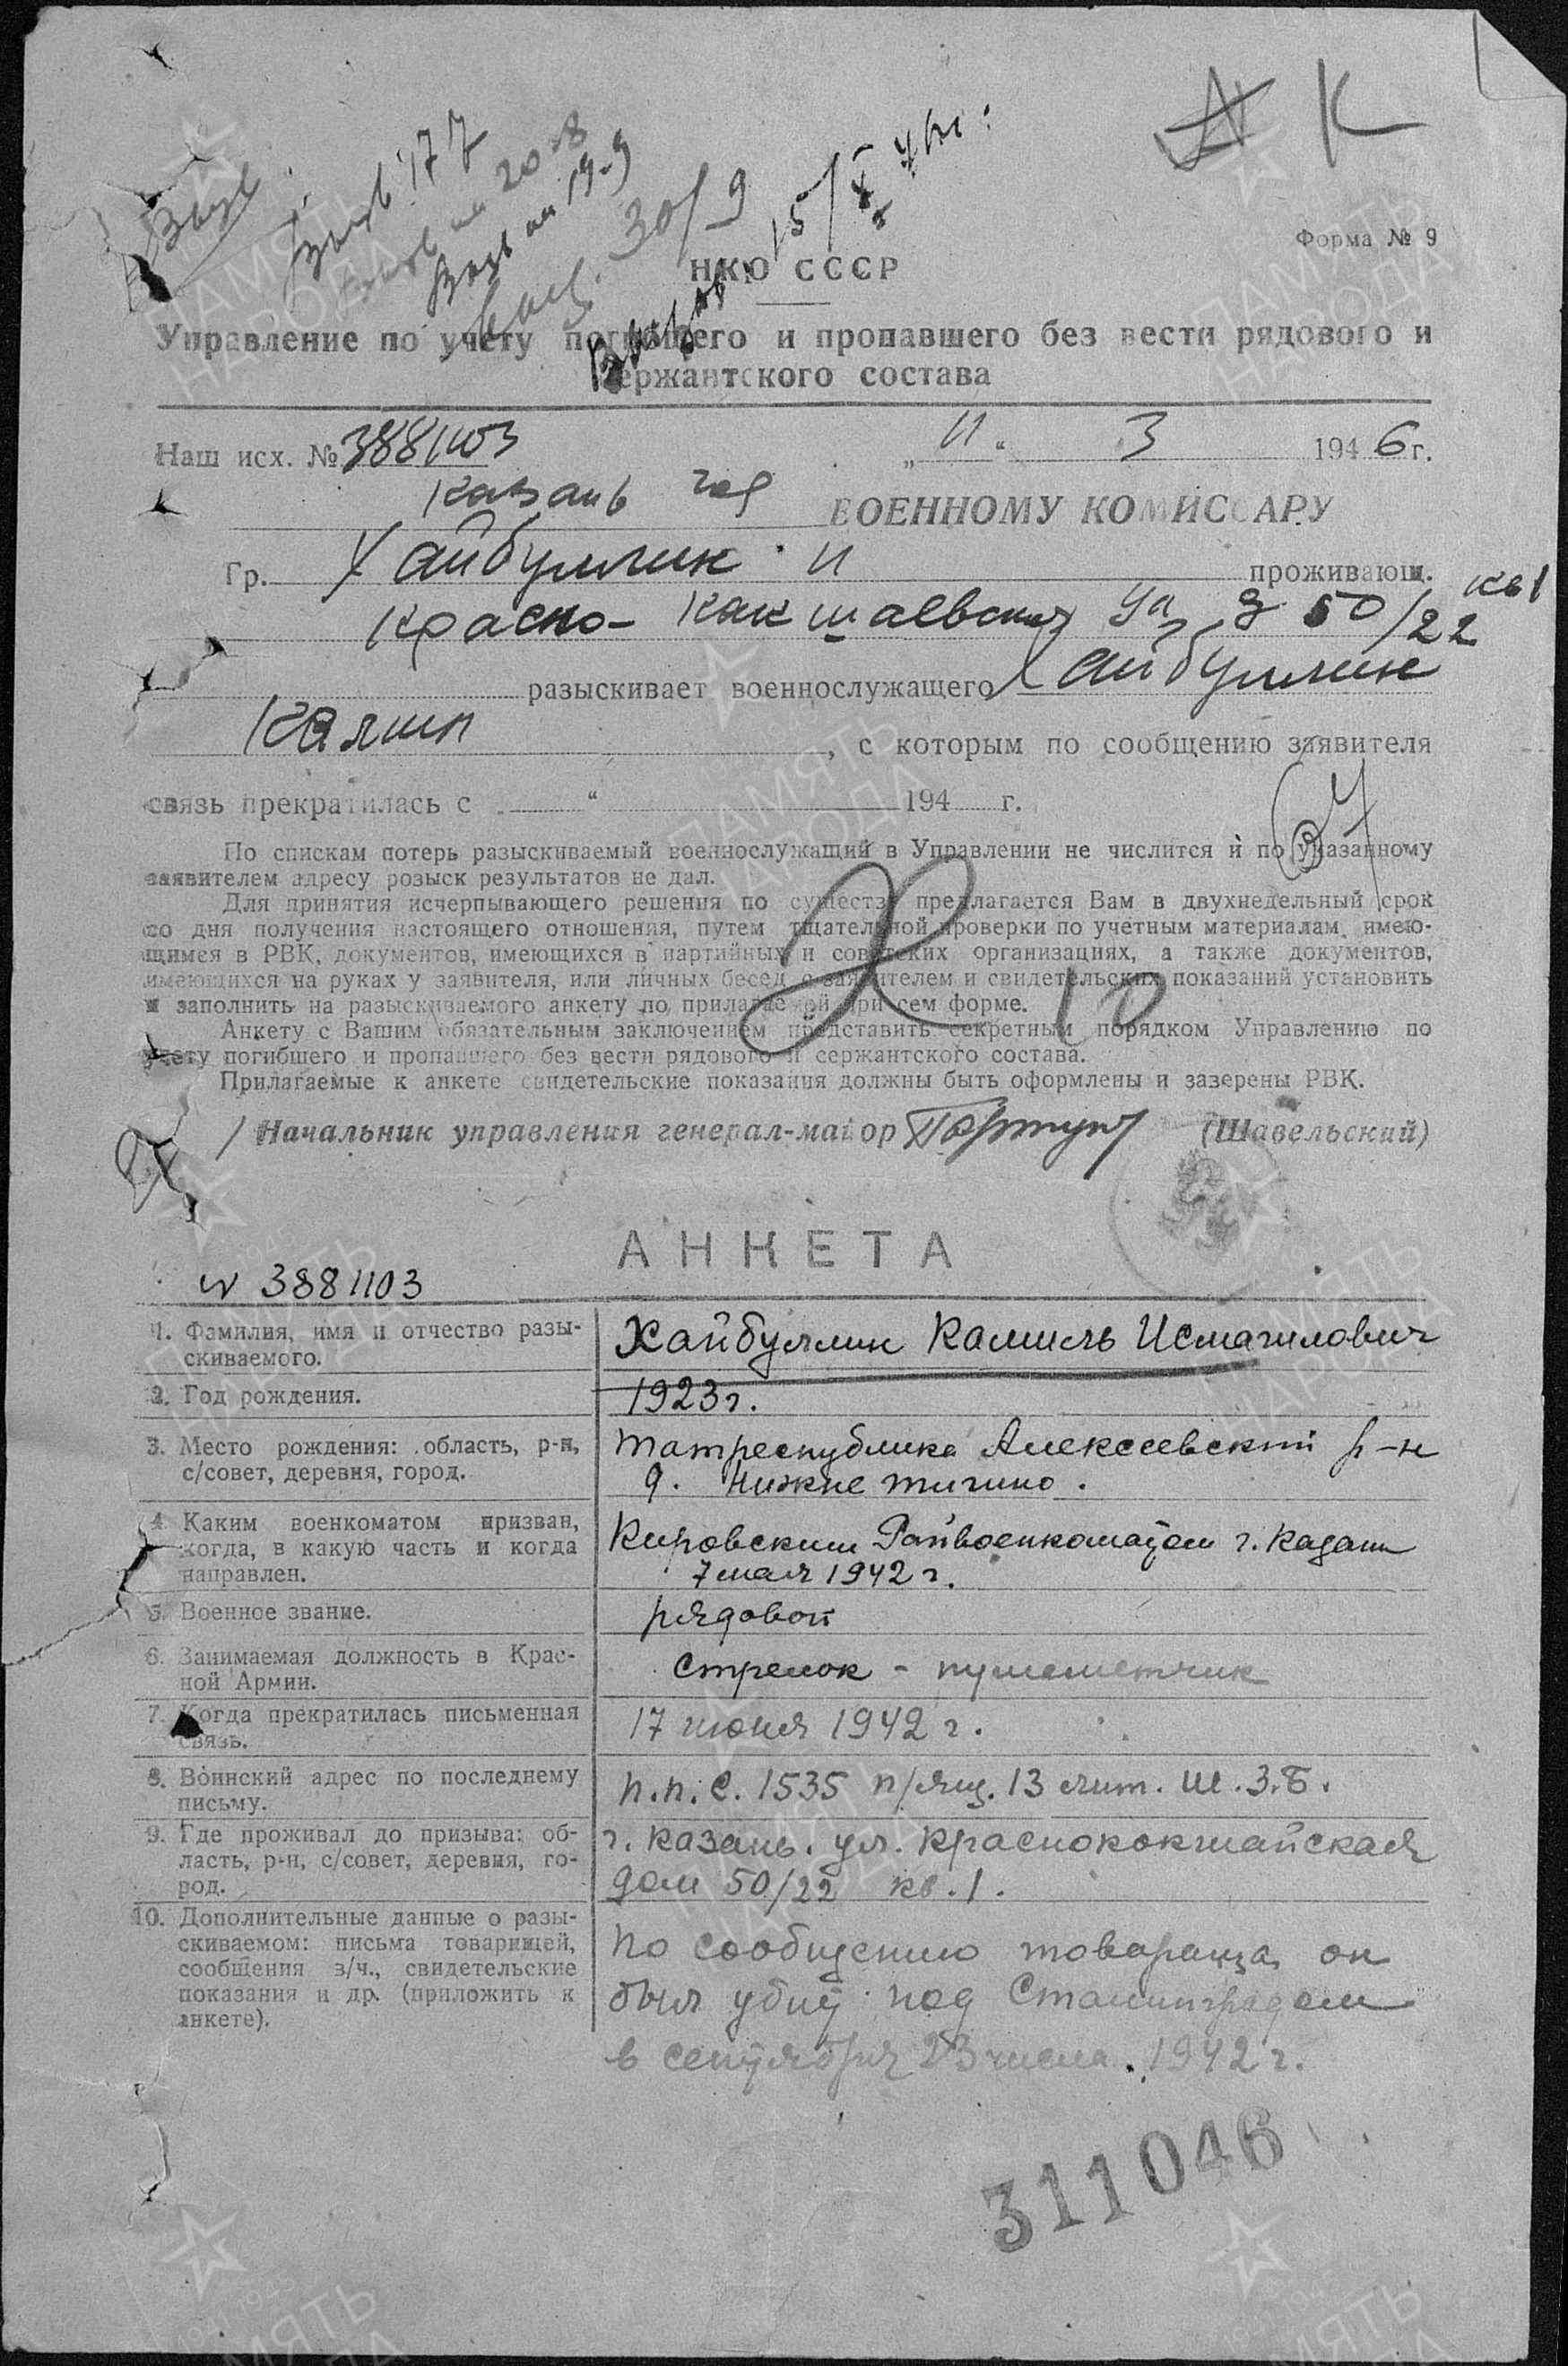 К
Форма № 9
30/9
НКО СССР
Управление по учету погибшего и пропавшего без вести рядового и
сержантского состава
Наш исх. № 3881103 „11“ 3 1946 г.
Казань ВОЕННОМУ КОМИССАРУ
Гр. Хайбуллин И проживающ.
Красно-Какшаевская ул д 50/22 кв 1
разыскивает военнослужащего Хайбуллин
, с которым по сообщению заявителя
связь прекратилась с „ “ 194 г.
По спискам потерь разыскиваемый военнослужащий в Управлении не числится и по указанному
заявителем адресу розыск результатов не дал.
Для принятия исчерпывающего решения по существу предлагается Вам в двухнедельный срок
со дня получения настоящего отношения, путем тщательной проверки по учетным материалам, имею-
щимся в РВК, документов, имеющихся в партийных и советских организациях, а также документов,
имеющихся на руках у заявителя, или личных бесед с заявителем и свидетельских показаний установить
и заполнить на разыскиваемого анкету по прилагаемой при сем форме.
Анкету с Вашим обязательным заключением представить секретным порядком Управлению по
учету погибшего и пропавшего без вести рядового и сержантского состава.
Прилагаемые к анкете свидетельские показания должны быть оформлены и заверены РВК.
Начальник управления генерал-майор (Шавельский)
АНКЕТА
N 3881103
1. Фамилия, имя и отчество разы-
скиваемого.
Хайбуллин Камиль Исмагилович
2. Год рождения.
1923 г.
3. Место рождения: область, р-н,
с/совет, деревня, город.
Татреспублика Алексеевский р-н
д. Нижне Тигино.
4. Каким военкоматом призван,
когда, в какую часть и когда
направлен.
Кировским Райвоенкоматом г. Казани
7 мая 1942 г.
5. Военное звание.
рядовой
6. Занимаемая должность в Крас-
ной Армии.
Стрелок - пулеметчик
7. Когда прекратилась письменная
связь.
17 июня 1942 г.
8. Воинский адрес по последнему
письму.
п.п.с. 1535 п/ящ. 13 лит. Ш.З.Б.
9. Где проживал до призыва: об-
ласть, р-н, с/совет, деревня, го-
род.
г. Казань. ул. Краснококшайская
дом 50/22 кв. 1.
10. Дополнительные данные о разы-
скиваемом: письма товарищей,
сообщения в/ч., свидетельские
показания и др. (приложить к
анкете).
По сообщению товарища он
был убит под Сталинградом
в сентября 23 числа. 1942 г.
311046